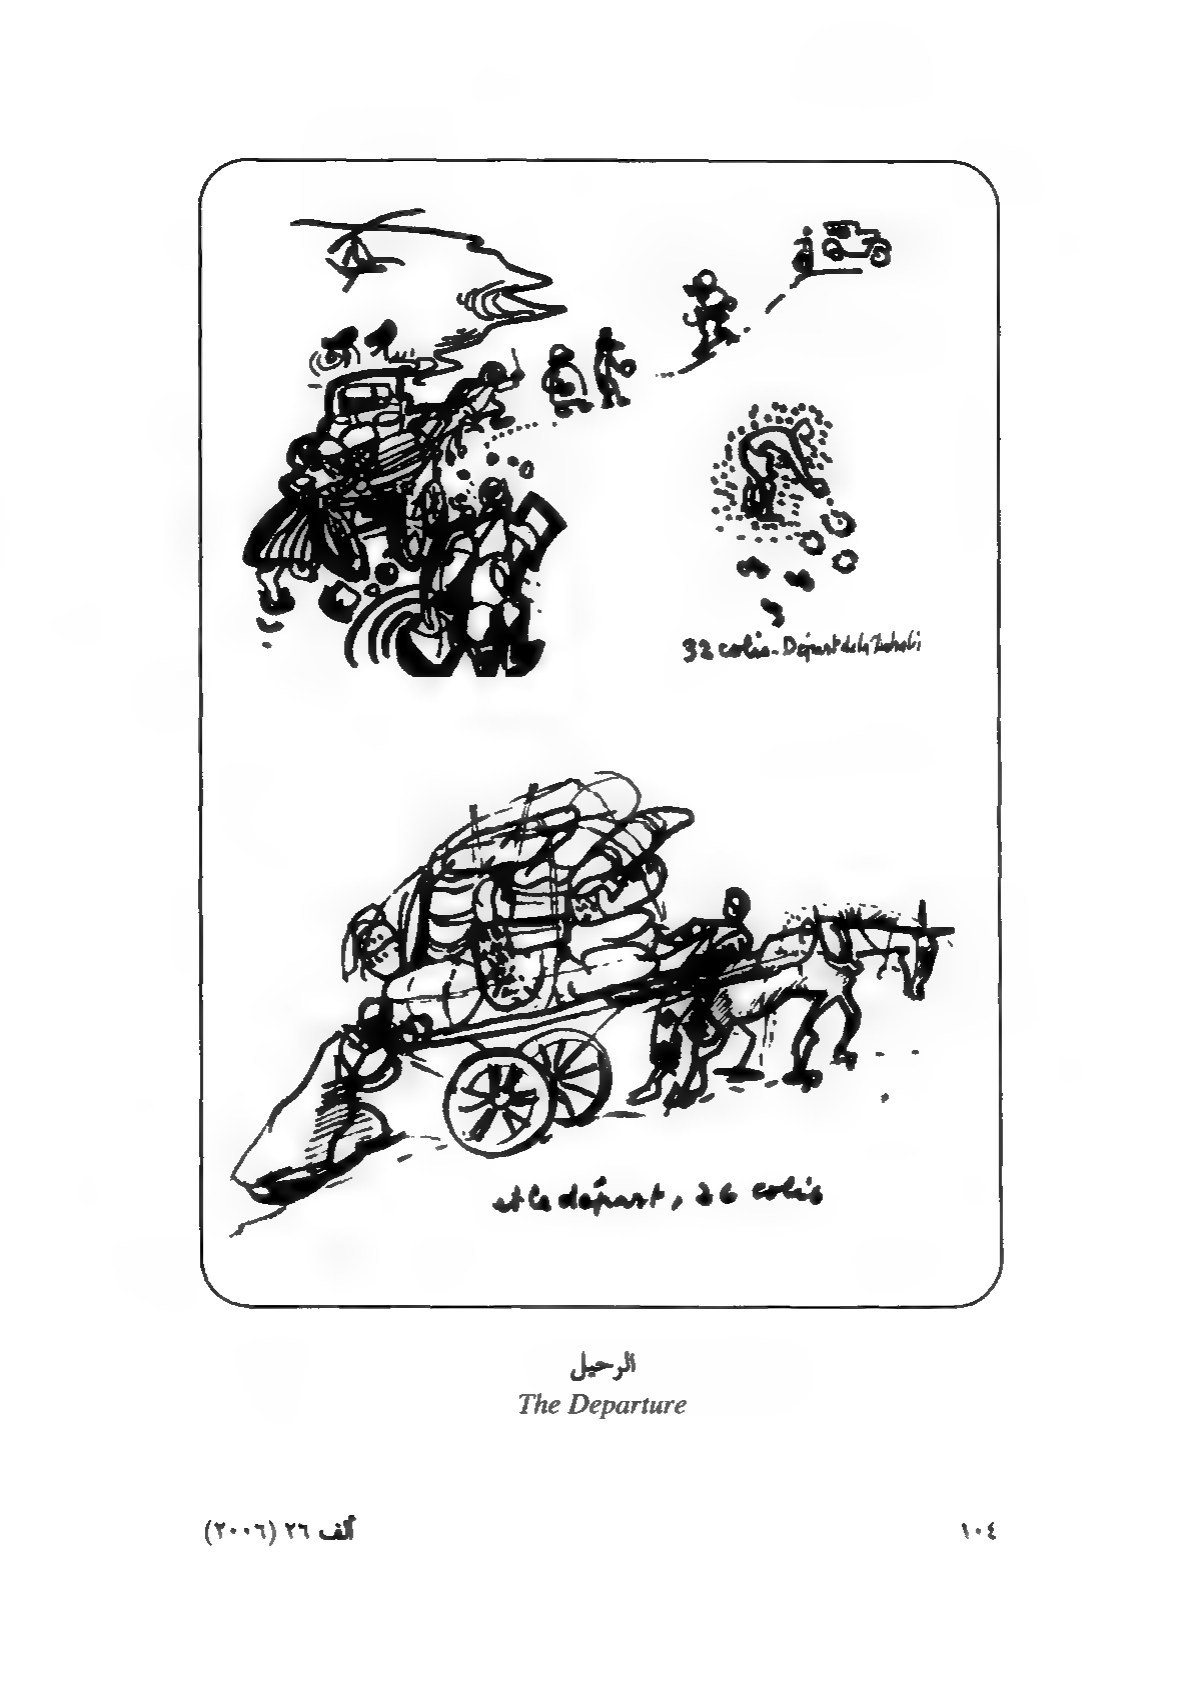 32 colis - Départ de la
et le départ, 26 colis
الرحيل
The Departure
ألف ٢٦ (٢٠٠٦)
١٠٤